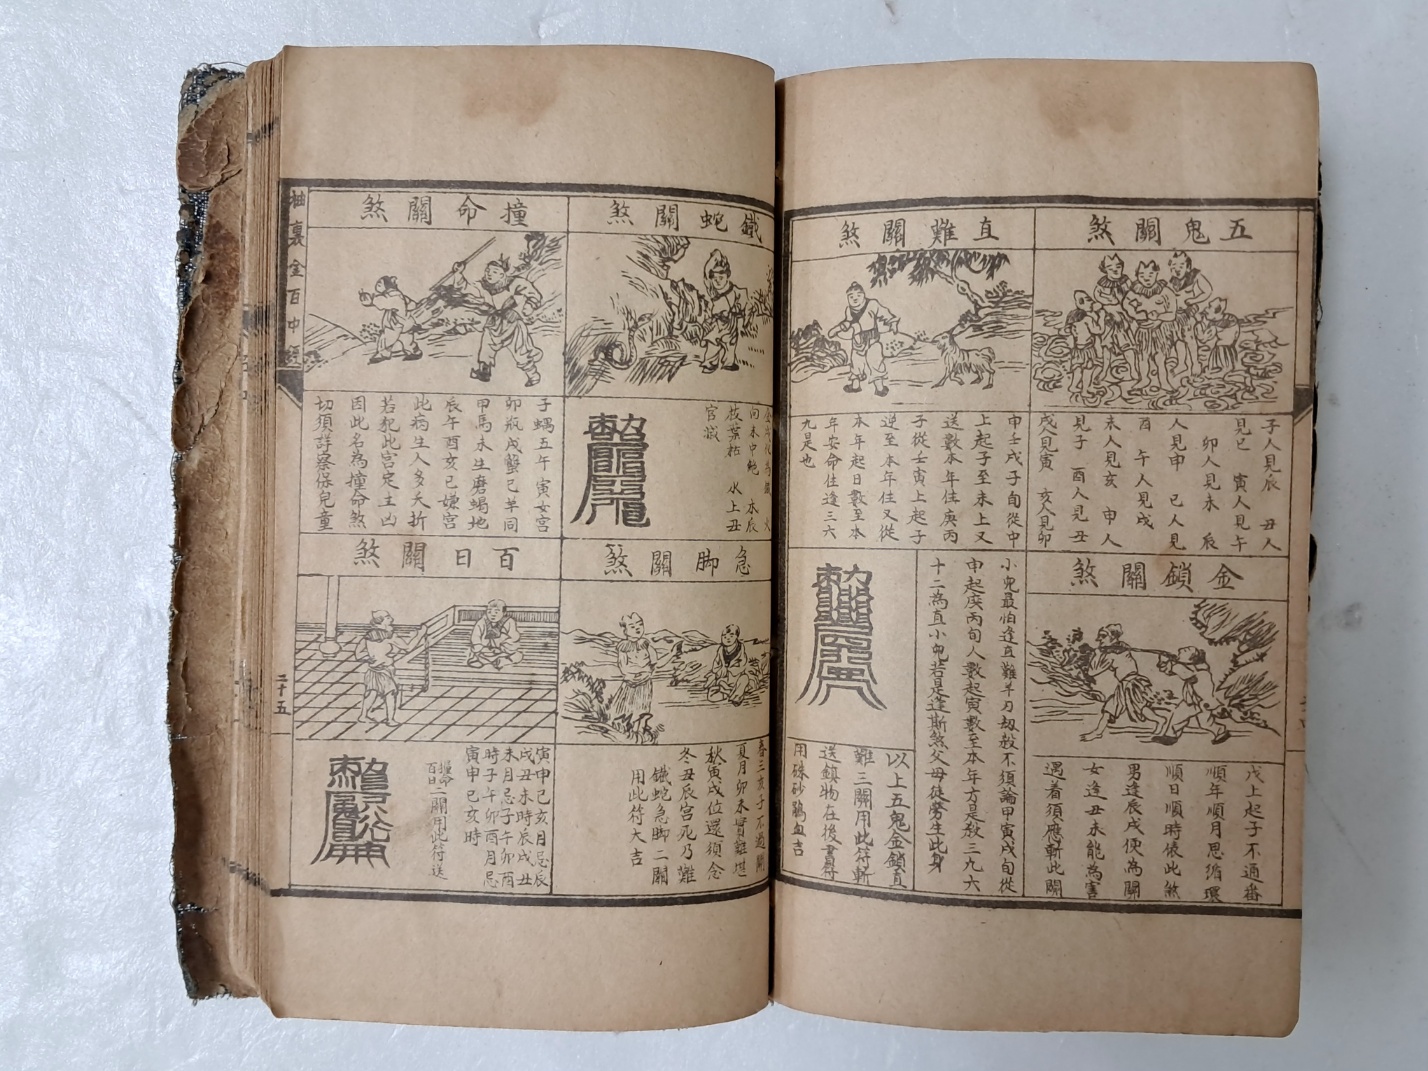 五鬼關煞
子人見辰　丑人
見巳　寅人見午
卯人見未　辰
人見申　巳人見
酉　午人見戌
未人見亥　申人
見子　酉人見丑
戌人見寅　亥人見卯
金鎖關煞
戊上起子不通番
順年順月思循環
順日順時俵此煞
男逢辰戌便為關
女逢丑未能為害
遇着須應斬此關
直難關煞
申壬戌子旬從中
上起子至未上又
送數本年住庚丙
子從壬寅上起子
逆至本年住又從
本年起日數至本
年安命住逢三六
九是也
小兒最怕逢直難羊刃劫殺不須論甲寅戌旬從
申起庚丙旬人數起寅數至本年方是殺三九六
十二為直小兒若是逢斯煞父母徒勞生此身
以上五鬼金鎖直
難三關用此符斬
送鎮物在後書符
用硃砂鷄血吉
鐵蛇關煞
金戌化為鐵　火
向未申絕　木辰
枝葉枯　水上丑
官滅
急脚關煞
春三亥子不過關
夏月卯未實難堪
秋寅戌位還須念
冬丑辰宮死乃難
鐵蛇急脚二關
用此符大吉
撞命關煞
子蝎五午　寅女宮
卯瓶戌蟹巳羊同
甲馬未生磨蝎地
辰午酉亥已嫌宮
此病生人多夭折
若犯此宮定主凶
因此名為撞命煞
切須詳察保兒童
百日關煞
寅申巳亥月忌辰
戌丑未時辰戌丑
未月忌子午卯酉
時子午卯酉月忌
寅申巳亥時
撞命
百日二關用此符送
袖裏金百中經
二十五